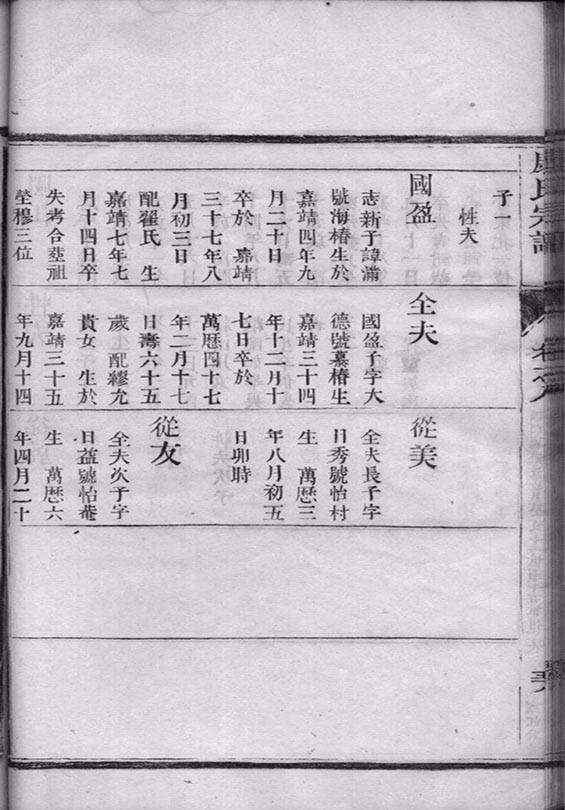 氏宗譜
子一
性夫
國盈
志新子諱滿
號海椿生於
嘉靖四年九
月二十日
卒於 嘉靖
三十七年八
月初三日
配翟氏 生
嘉靖七年七
月十四日卒
失考合塟祖
塋穆三位
全夫
國盈子字大
德號慕椿生
嘉靖三十四
年十二月十
七日卒於
萬曆四十七
年二月十七
日壽六十五
歲生配繆允
貴女 生於
嘉靖三十五
年九月十四
從美
全夫長子字
日秀號怡村
生 萬曆三
年八月初五
日卯時
從友
全夫次子字
日益號怡菴
生 萬曆六
年四月二十